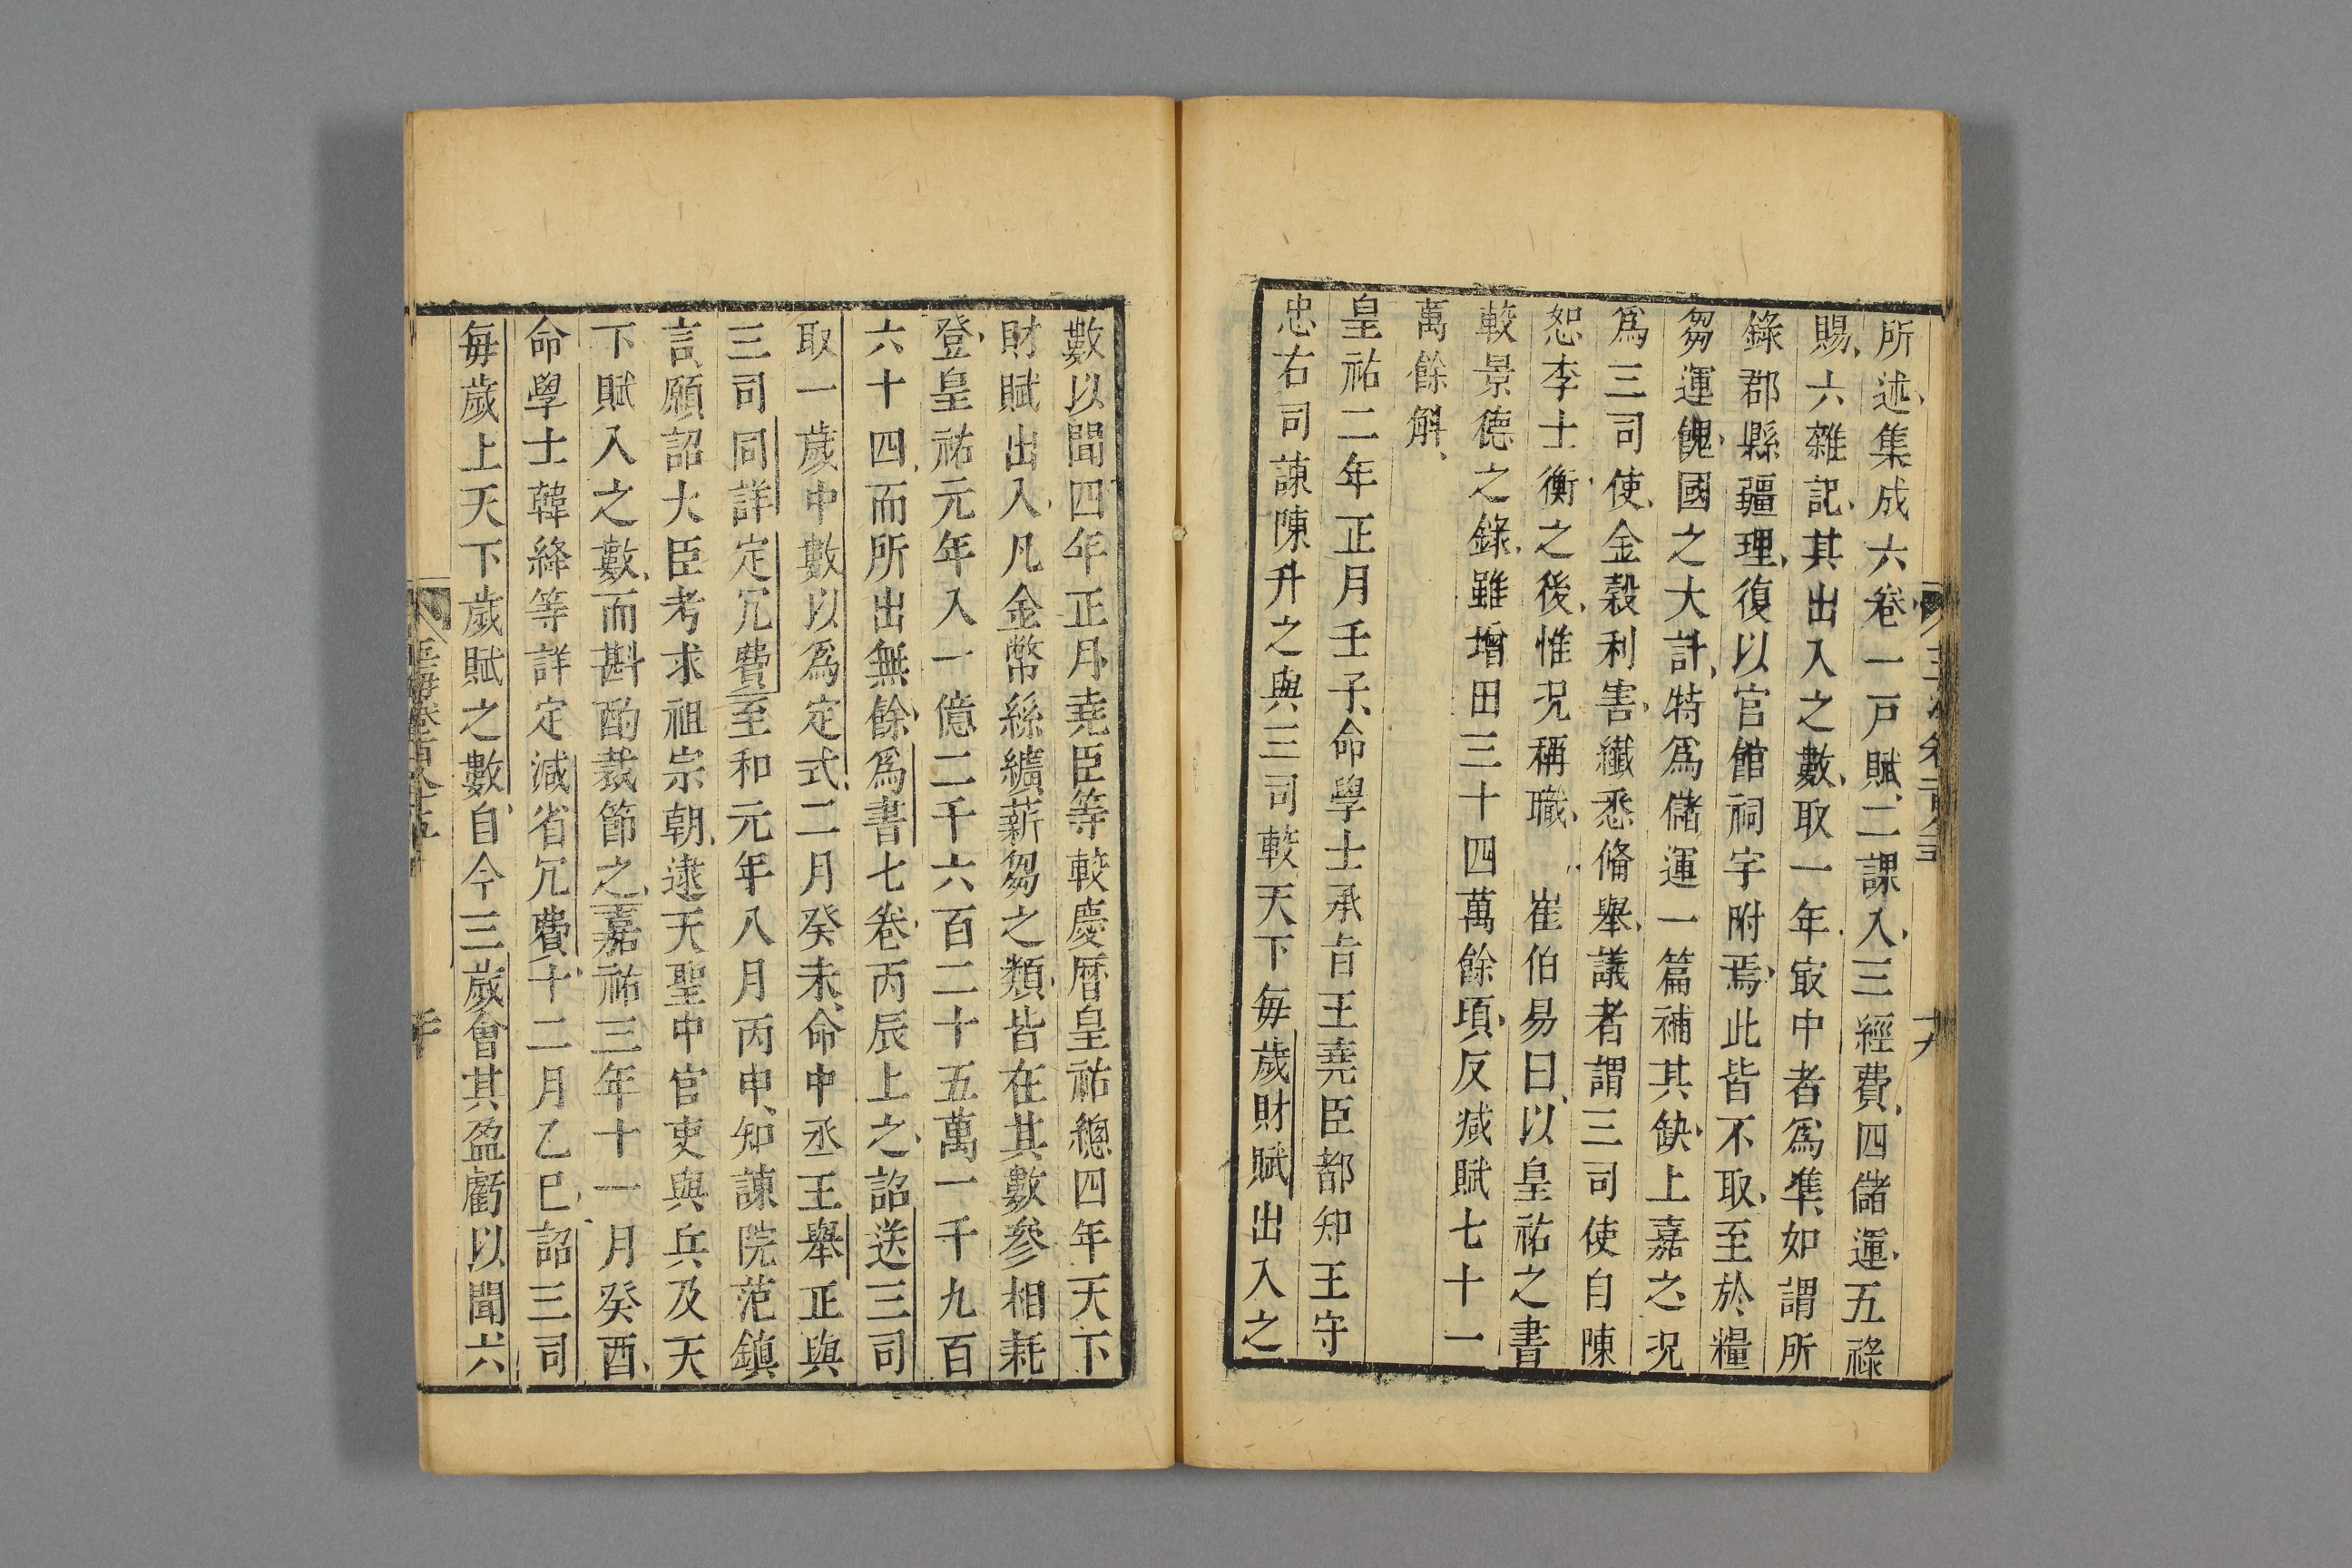 所述集成六卷一戸賦二課入三經費四儲運五祿
賜六雜記其出入之數取一年㝡中者爲準如謂所
錄郡縣疆理復以官館祠宇附焉此皆不取至於糧
芻運餽國之大計特爲儲運一篇補其缺上嘉之況
爲三司使金榖利害纖悉脩舉議者謂三司使自陳
恕李士衡之後惟況稱職 崔伯易曰以皇祐之書
較景德之錄雖增田三十四萬餘頃反减賦七十一
萬餘斛
皇祐二年正月壬子命學士承旨王堯臣都知王守
忠右司諫陳升之與三司較天下每歲財賦出入之
數以聞四年正月堯臣等較慶曆皇祐總四年天下
財賦出入凡金幣絲纊薪芻之類皆在其數參相耗
登皇祐元年入一億二千六百二十五萬一千九百
六十四而所出無餘爲書七卷丙辰上之詔送三司
取一歲中數以爲定式二月癸未命中丞王舉正與
三司同詳定冗費至和元年八月丙申知諫院范鎮
言願詔大臣考求祖宗朝逮天聖中官吏與兵及天
下賦入之數而斟酌裁節之嘉祐三年十一月癸酉
命學士韓絳等詳定減省冗費十二月乙巳詔三司
每歲上天下歲賦之數自今三歲會其盈虧以聞六
玉海卷百八十五